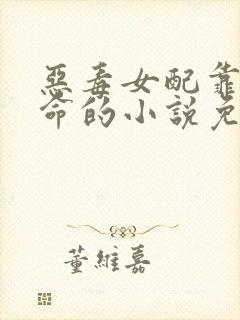 惡毒女配靠
命的小說免
董維嘉